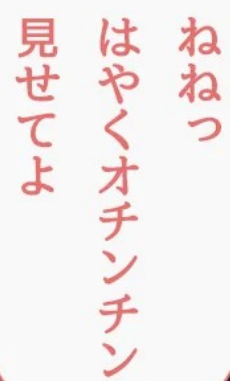 ねねっ
はやくオチンチン
見せてよ